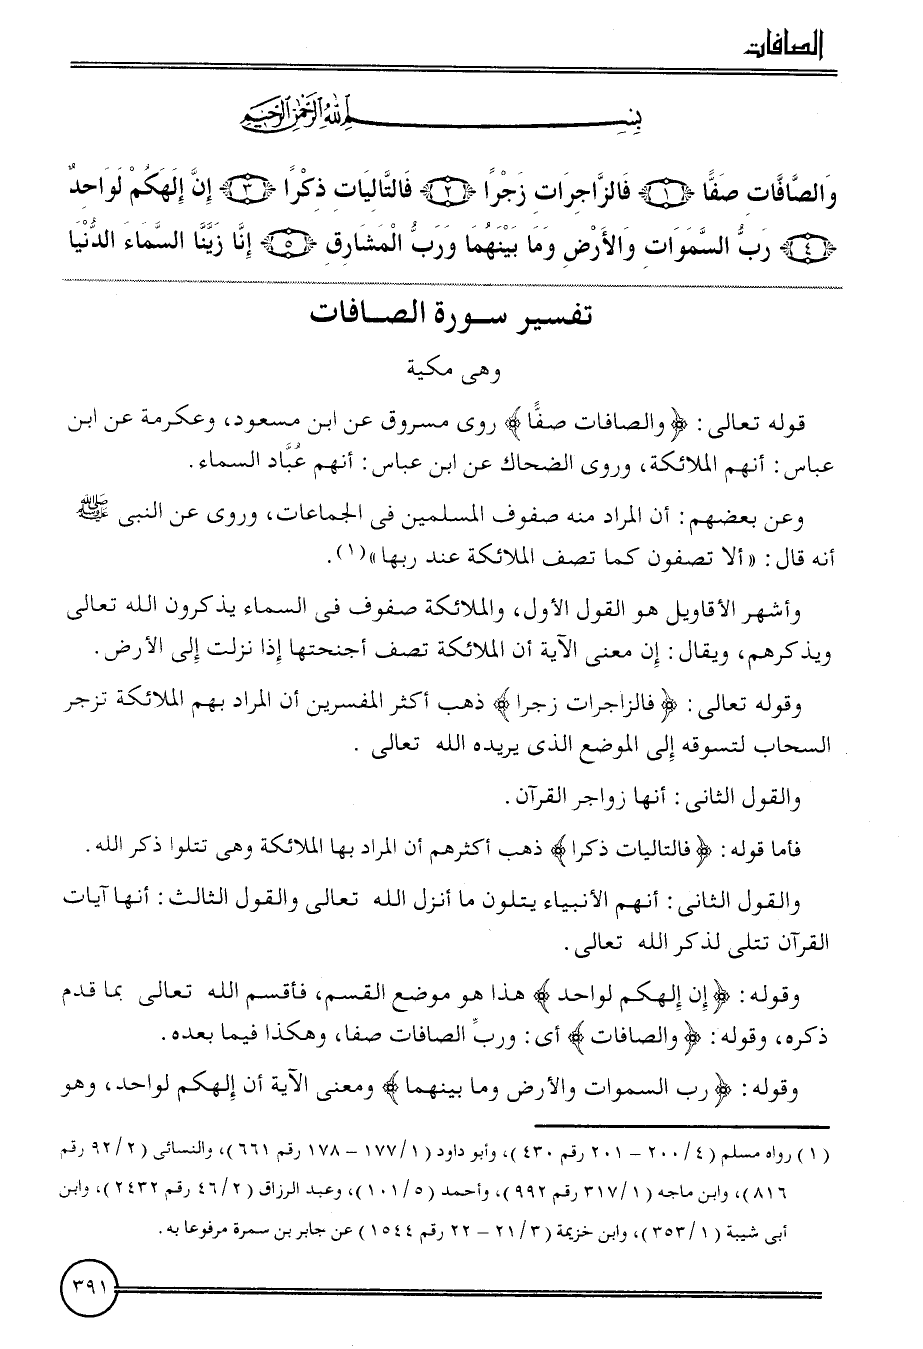 الصافات
بِسْمِ اللَّهِ الرَّحْمَٰنِ الرَّحِيمِ
وَالصَّافَّاتِ صَفًّا ﴿١﴾ فَالزَّاجِرَاتِ زَجْرًا ﴿٢﴾ فَالتَّالِيَاتِ ذِكْرًا ﴿٣﴾ إِنَّ إِلَهَكُمْ لَوَاحِدٌ
﴿٤﴾ رَبُّ السَّمَوَاتِ وَالأَرْضِ وَمَا بَيْنَهُمَا وَرَبُّ الْمَشَارِقِ ﴿٥﴾ إِنَّا زَيَّنَّا السَّمَاءَ الدُّنْيَا
تفسير سورة الصافات
وهى مكية
قوله تعالى: ﴿والصافات صفًّا﴾ روى مسروق عن ابن مسعود، وعكرمة عن ابن
عباس: أنهم الملائكة، وروى الضحاك عن ابن عباس: أنهم عُبَّاد السماء.
وعن بعضهم: أن المراد منه صفوف المسلمين فى الجماعات، وروى عن النبى ﷺ
أنه قال: «ألا تصفون كما تصف الملائكة عند ربها»(١).
وأشهر الأقاويل هو القول الأول، والملائكة صفوف فى السماء يذكرون الله تعالى
ويذكرهم، ويقال: إن معنى الآية أن الملائكة تصف أجنحتها إذا نزلت إلى الأرض.
وقوله تعالى: ﴿فالزاجرات زجرا﴾ ذهب أكثر المفسرين أن المراد بهم الملائكة تزجر
السحاب لتسوقه إلى الموضع الذى يريده الله تعالى .
والقول الثانى: أنها زواجر القرآن.
فأما قوله: ﴿فالتاليات ذكرا﴾ ذهب أكثرهم أن المراد بها الملائكة وهى تتلوا ذكر الله.
والقول الثانى: أنهم الأنبياء يتلون ما أنزل الله تعالى والقول الثالث: أنها آيات
القرآن تتلى لذكر الله تعالى.
وقوله: ﴿إن إلهكم لواحد﴾ هذا هو موضع القسم، فأقسم الله تعالى بما قدم
ذكره، وقوله: ﴿والصافات﴾ أى: وربِّ الصافات صفا، وهكذا فيما بعده.
وقوله: ﴿رب السموات والأرض وما بينهما﴾ ومعنى الآية أن إلهكم لواحد، وهو
(١) رواه مسلم (٤/ ٢٠٠ – ٢٠١ رقم ٤٣٠)، وأبو داود (١/ ١٧٧ – ١٧٨ رقم ٦٦١)، والنسائى (٢/ ٩٢ رقم
٨١٦)، وابن ماجه (١/ ٣١٧ رقم ٩٩٢)، وأحمد (٥/ ١٠١)، وعبد الرزاق (٢/ ٤٦ رقم ٢٤٣٢)، وابن
أبى شيبة (١/ ٣٥٣)، وابن خزيمة (٣/ ٢١ – ٢٢ رقم ١٥٤٤) عن جابر بن سمرة مرفوعا به.
٣٩١